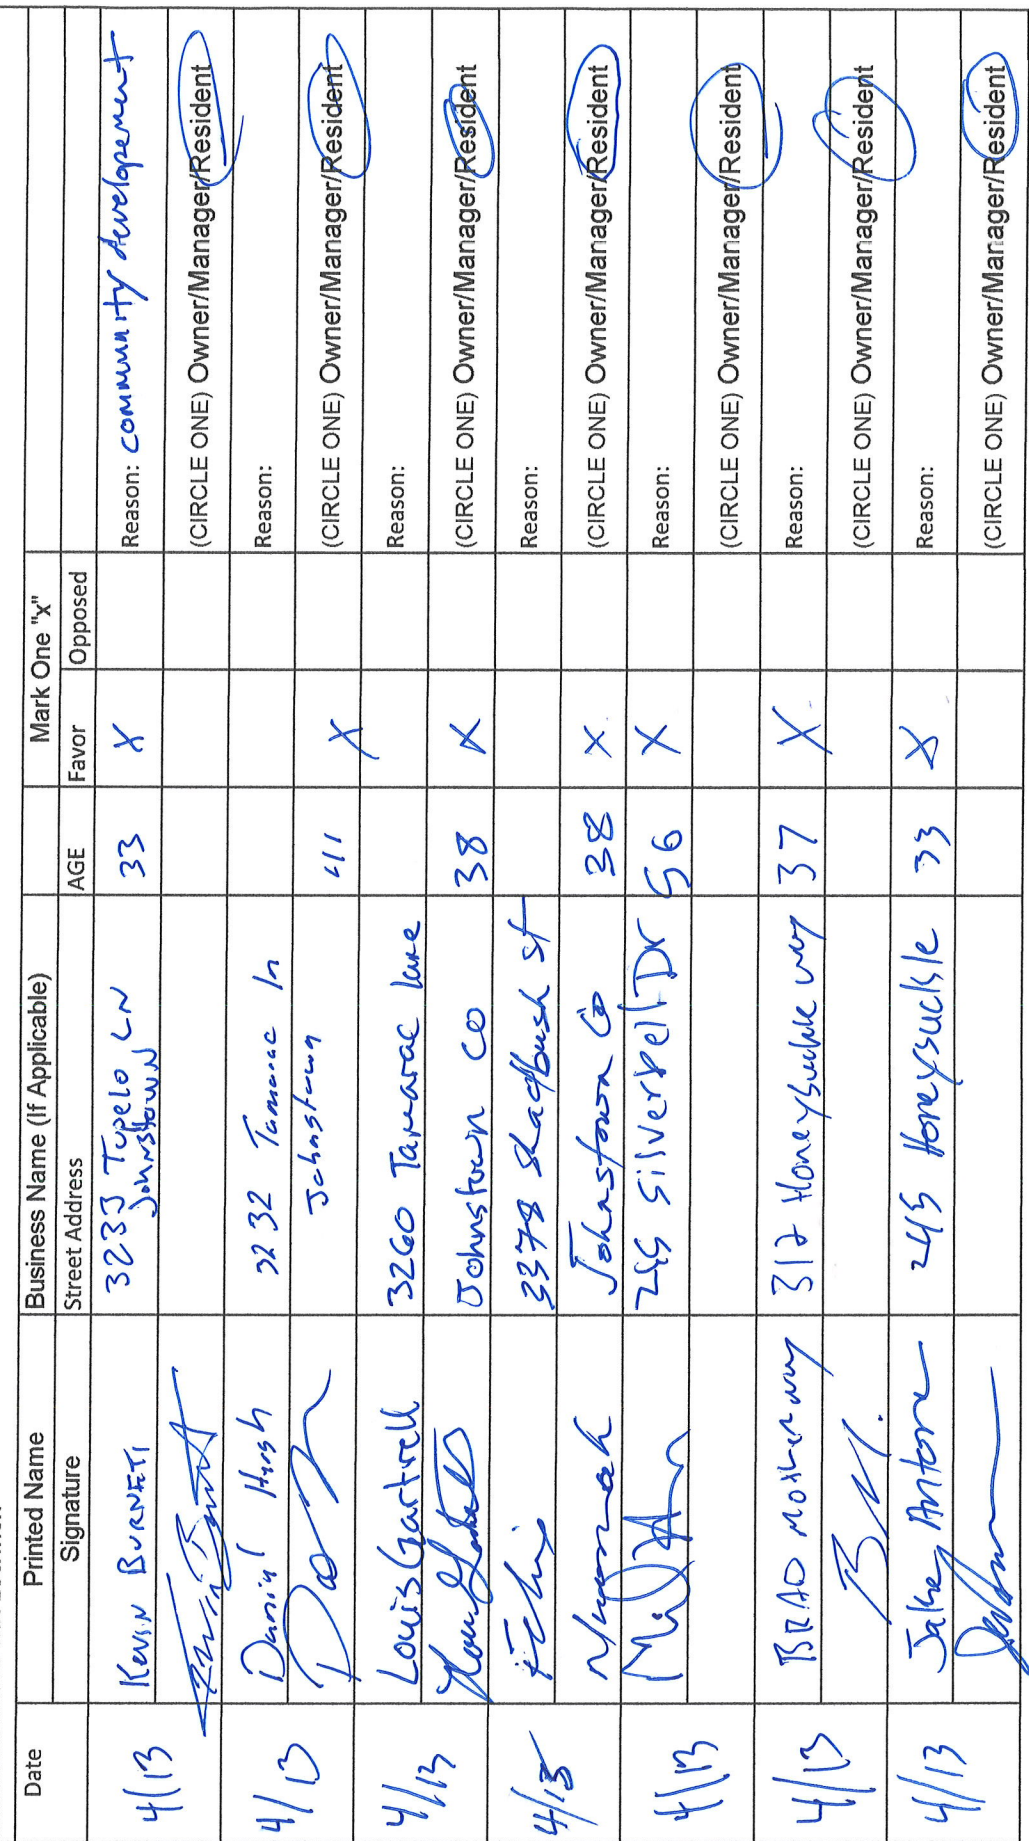 Date
Printed Name
Business Name (If Applicable)
Mark One "x"
Signature
Street Address
AGE
Favor
Opposed
4/13
KEVIN BURNETT
3233 Tupelo LN
Johnstown
33
X
Reason: community developement
(CIRCLE ONE) Owner/Manager/Resident
4/13
Daniel Hirsh
3232 Tamarac ln
Johnstown
41
X
Reason:
(CIRCLE ONE) Owner/Manager/Resident
4/13
Louis Gartrell
3260 Tamarac lane
Johnstown CO
38
X
Reason:
(CIRCLE ONE) Owner/Manager/Resident
4/13
3378 Shadbush st
Johnstown Co
38
X
Reason:
(CIRCLE ONE) Owner/Manager/Resident
4/13
Silverbell Dr
56
X
Reason:
(CIRCLE ONE) Owner/Manager/Resident
4/13
BRAD
317 Honeysuckle way
37
X
Reason:
(CIRCLE ONE) Owner/Manager/Resident
4/13
Jake Antone
245 Honeysuckle
33
X
Reason:
(CIRCLE ONE) Owner/Manager/Resident